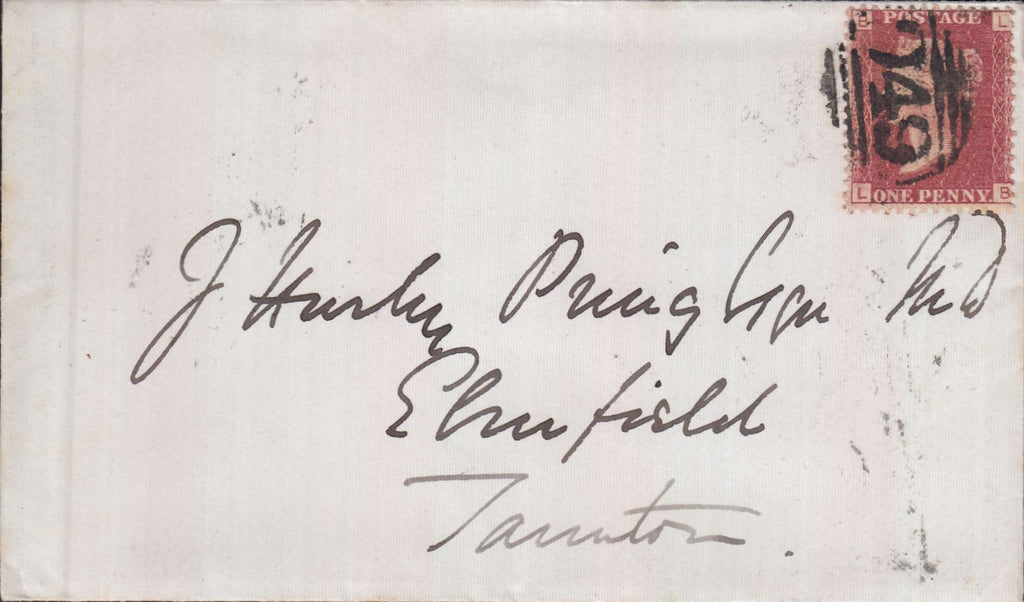 B POSTAGE L
749
L ONE PENNY B
J Hurly Pring Esqre MD
Elmfield
Taunton.